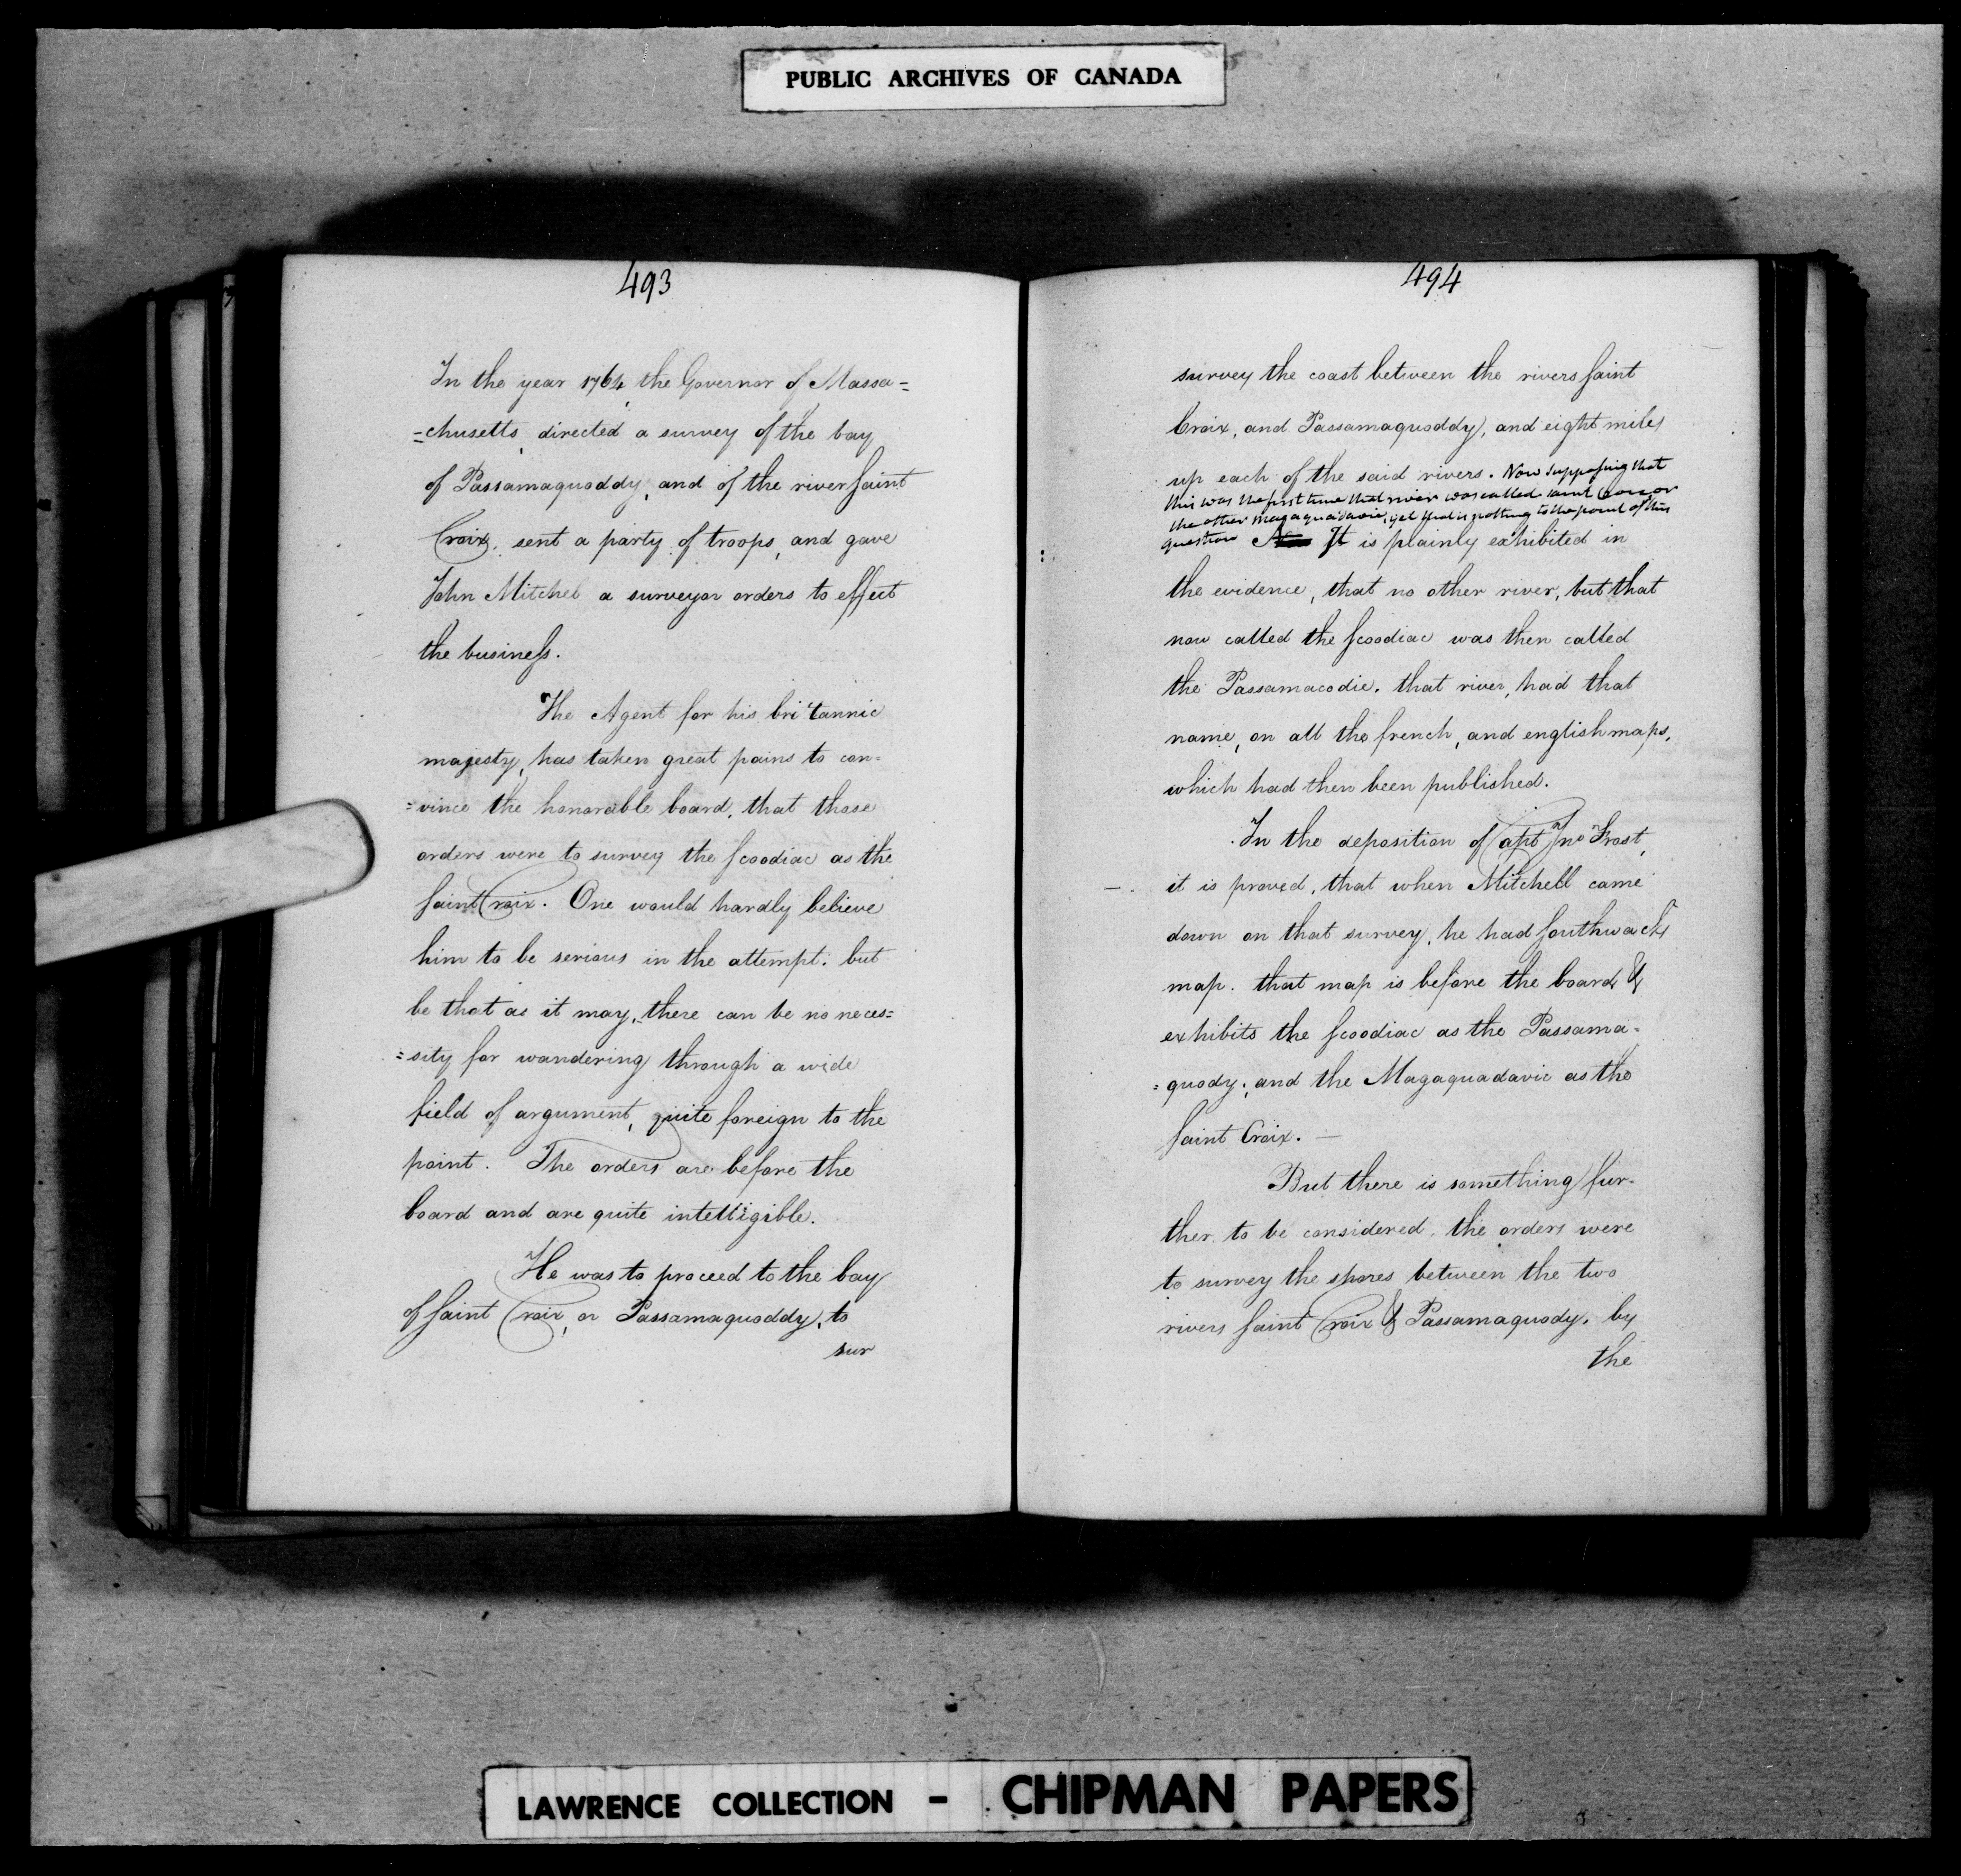 PUBLIC ARCHIVES OF CANADA
493
In the year 1764, the Governor of Massa=
=chusetts, directed a survey of the bay
of Passamaquoddy, and of the river saint
Croix, sent a party of troops, and gave
John Mitchel a surveyor orders to effect
the business.
The Agent for his britannic
majesty, has taken great pains to con=
=vince the honorable board, that those
orders were to survey the scoodiac as the
saint Croix. One would hardly believe
him to be serious in the attempt. but
be that as it may, there can be no neces=
=sity for wandering through a wide
field of argument, quite foreign to the
point. The orders are before the
board and are quite intelligible.
He was to proceed to the bay
of saint Croix, or Passamaquoddy, to
sur
494
survey the coast between the rivers saint
Croix, and Passamaquoddy, and eight miles
up each of the said rivers. Now supposing that
this was the first time that river was called saint Croix or
the other magaquadavic, yet that is nothing to the point of this
question It is plainly exhibited in
the evidence, that no other river, but that
now called the scoodiac was then called
the Passamacodie. that river, had that
name, on all the french, and english maps,
which had then been published.
In the deposition of Capt Jno Frost,
it is proved, that when Mitchell came
down on that survey, he had southwacks
map. that map is before the board &
exhibits the scoodiac as the Passama=
=quody; and the Magaquadavic as the
saint Croix. —
But there is something fur=
ther to be considered, the orders were
to survey the shores between the two
rivers saint Croix & Passamaquody, by
the
LAWRENCE COLLECTION - CHIPMAN PAPERS